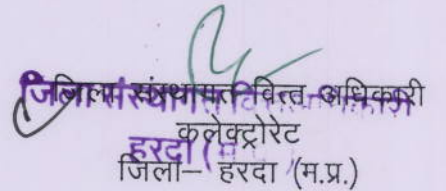 जिला संस्थागत वित्त अधिकारी
कलेक्ट्रोरेट
हरदा (म
जिला– हरदा (म.प्र.)